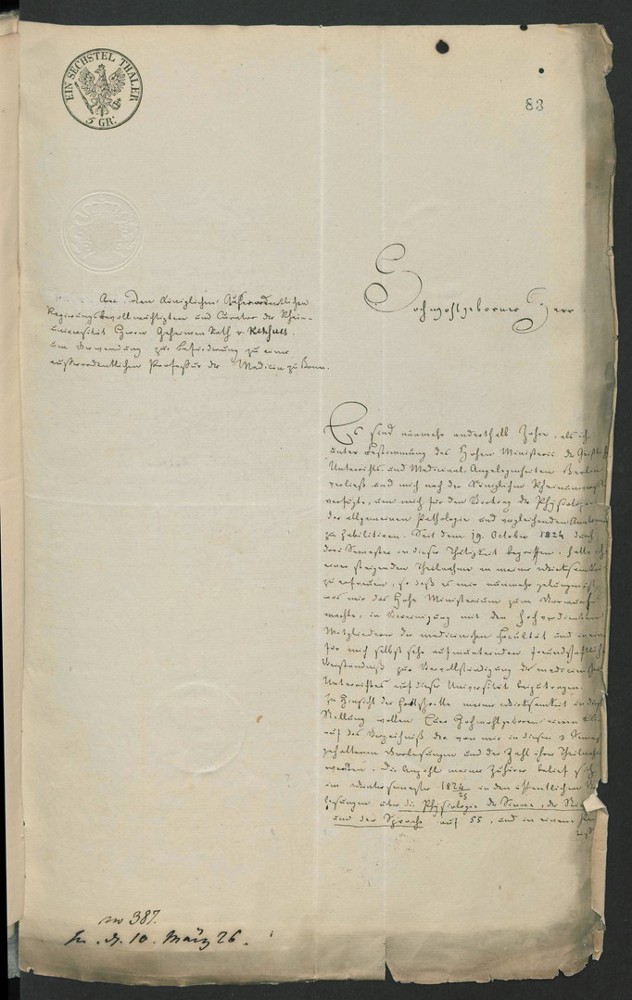 EIN SECHSTEL THALER
5 GR:
83
An den Königlichen Außerordentlichen
Regierungsbevollmächtigten und Curator der Rhein-
universität Herrn Geheimen Rath v. Rehfues
um Verwendung zur Beförderung zu einer
außerordentlichen Professur der Medicin zu Bonn.
Hochwohlgeborner Herr
Es sind nunmehr anderthalb Jahre, als ich
unter Bestimmung des Hohen Ministerii der Geistl
Unterrichts und Medicinal-Angelegenheiten Berlin
verließ und mich nach der Königlichen Rheinuniversit
verfügte, um mich für den Vortrag der Physiologie
der allgemeinen Pathologie und vergleichenden Anatomie
zu habilitiren. Seit dem 19. October 1824 durch
drei Semester in dieser Thätigkeit begriffen, hatte ich
einer steigenden Theilnahme an meiner Wirksamkeit
zu erfreuen, so daß es mir nunmehr gelungen ist,
was mir das Hohe Ministerium zum
machte, in Vereinigung mit den
Mitgliedern der medicinischen Facultät und in einem
für mich selbst sehr aufmunternden freundschaftlich
Verständniß zur Vervollständigung des medicinischen
Unterrichtes auf dieser Universität beizutragen.
In Hinsicht der Fortschritte meiner Wirksamkeit in dieser
Stellung wollen Euer Hochwohlgeboren einen Blick
auf das Verzeichniß der von mir in diesen 3 Semest
gehaltenen Vorlesungen und der Zahl ihrer Theilnehm
werfen. Die Anzahl meiner Zuhörer belief sich
im Wintersemester 1824/25 in den öffentlichen Vor
lesungen über die Physiologie der Sinne, der Sti
und der Sprache auf 55, und in einem
no 387.
pr. d. 10. März 26.